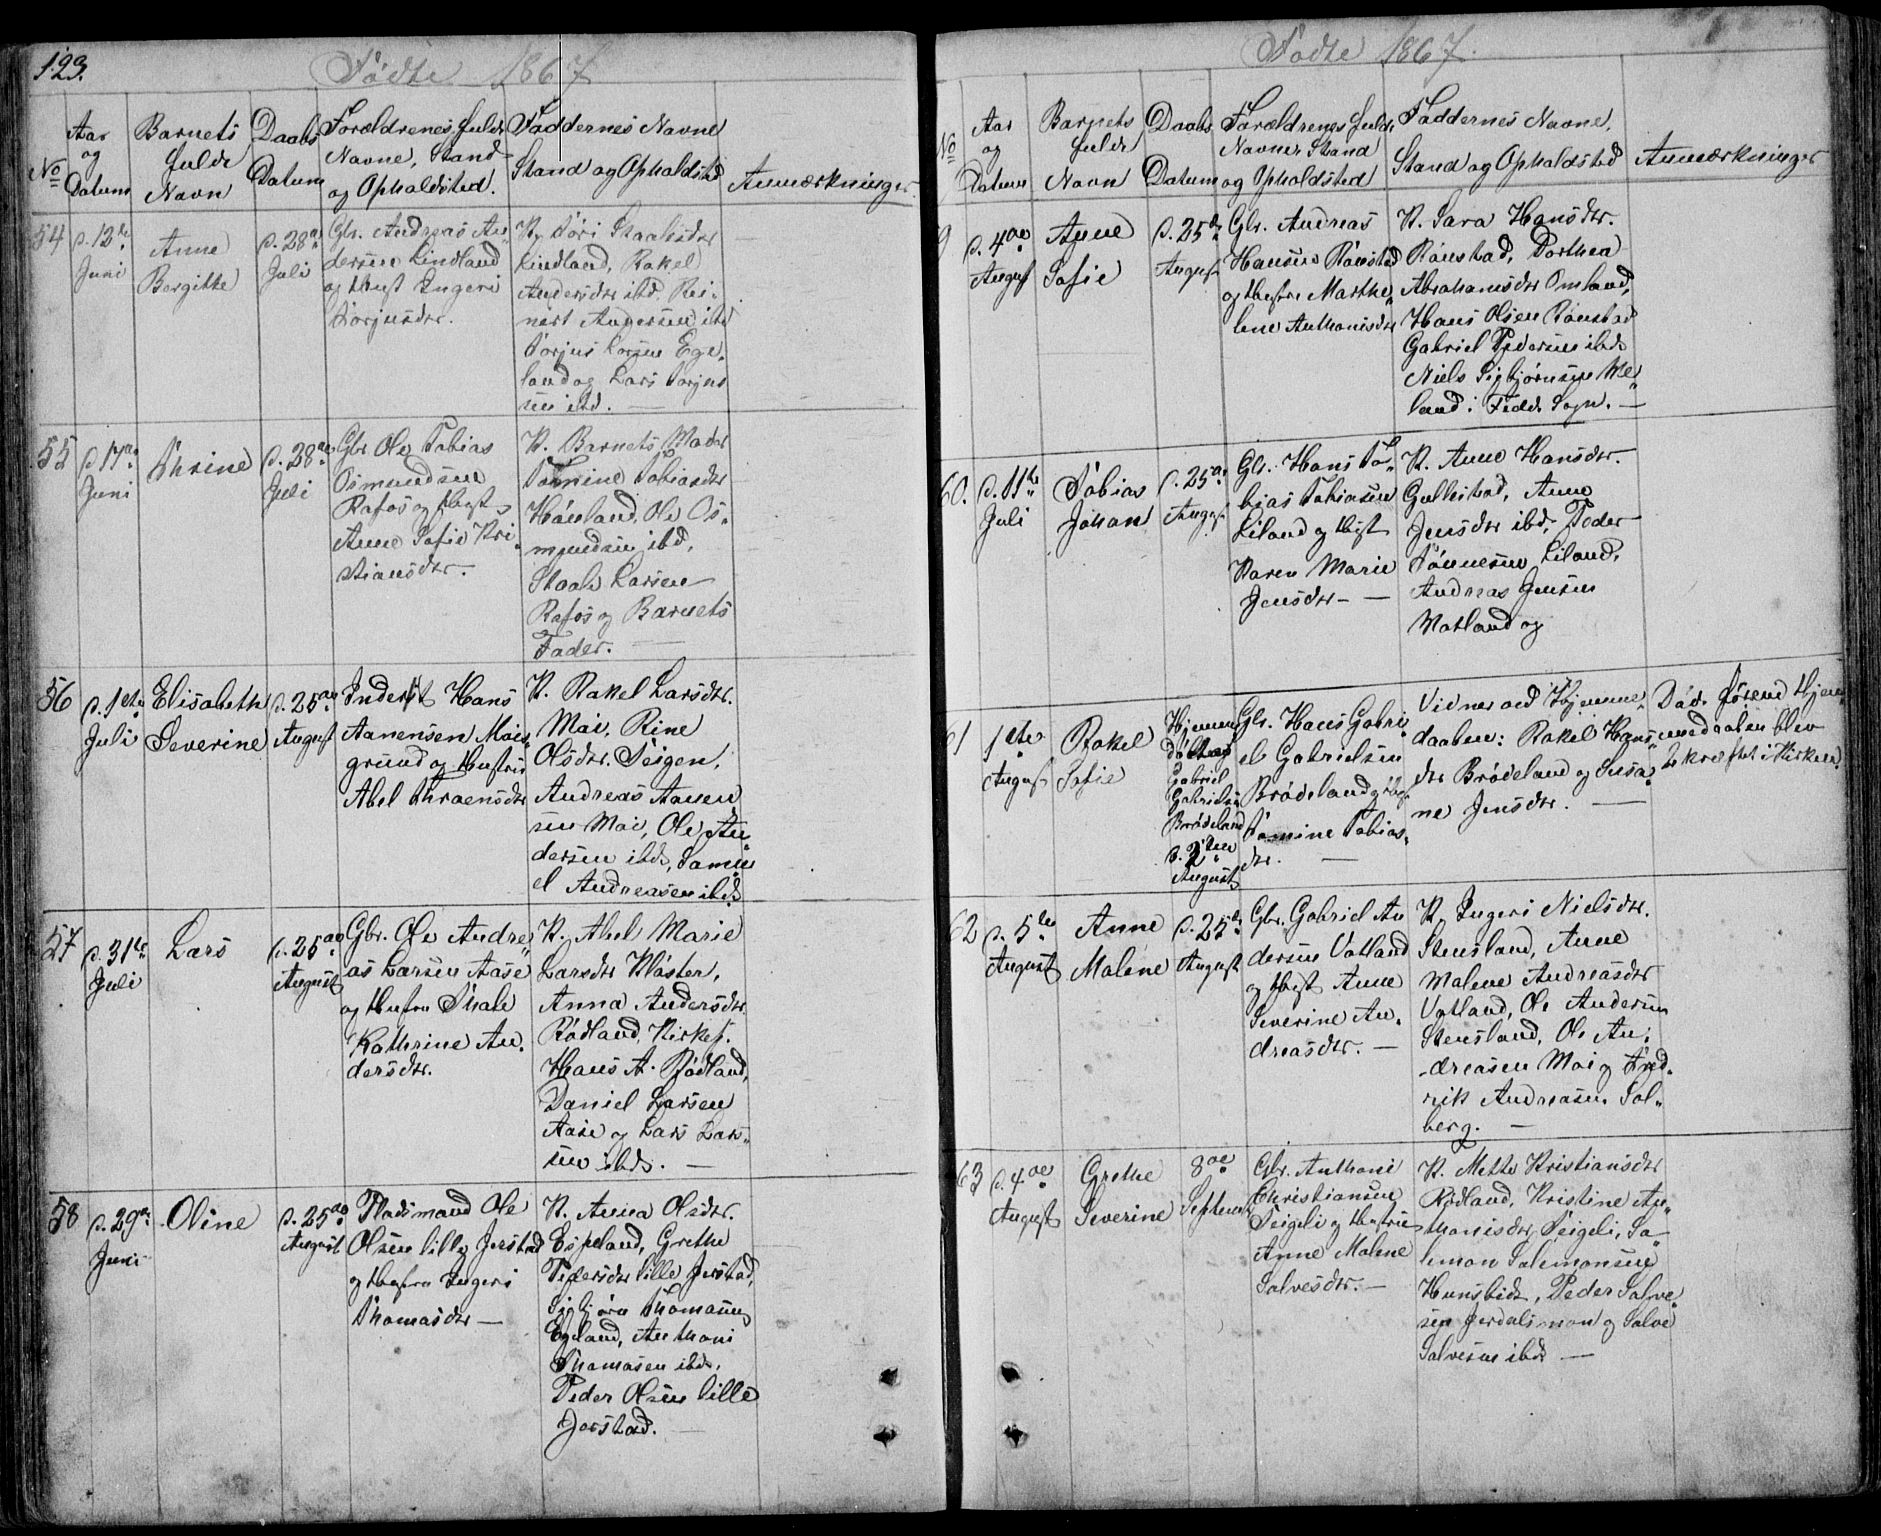 123.
Födte 1867
No
Aar
og
Datum
Barnets
fulde
Navn
Daabs
Datum
Forældrenes fulde
Navne, Stand
og Opholdsted.
Faddernes Navne
Stand og Opholdsted
Anmærkninger
54
d. 12te
Juni
Anne
Bergitte
d. 28de
Juli
Gbr. Andreas An„
dersen Lindland
og Hust Ingeri
Torjusdtr.
K. Töri Staalesdtr
Lindland, Rakel
Andersdtr ibd. Rei„
nert Andersen ibd
Torjus Larsen Ege„
land og Lars Torjus
sen ibd. —
55
d. 17de
Juni
Thrine
d. 28de
Juli
Gbr Ole Tobias
Osmundsen
Rafos og Hust
Anne Sofie Kri„
stiansdtr.
K. Barnets Moder
Tomine Tobiasdtr
Hömland, Ole Os„
mundsen ibd.
Staale Larsen
Rafos og Barnets
Fader. —
56
d. 1ste
Juli
Elisabeth
Severine
d. 25de
August
Inderst Hans
Aanensen Moi„
grund og Hustrue
Abel Thraensdtr
K. Rakel Larsdtr.
Moi, Rine
Olsdtr. Teigen,
Andreas Aanen
sen Moi, Ole An„
dersen ibd, Samu„
el Andreasen ibd.
57
d. 31te
Juli
Lars
d. 25de
August
Gbr. Ole Andre„
as Larsen Aase
og Hustru Thale
Kathrine An„
dersdtr.
K. Abel Marie
Larsdtr Kloster,
Anna Andersdtr
Rödland, Kirkej.
Hans A. Rödland,
Daniel Larsen
Aase og Lars Lar„
sen ibd. —
58
d. 29de
Juni
Oline
d. 25de
August
Pladsmand Ole
Olsen lille Jerstad
og Hustru Ingeri
Thomasdtr —
K. Anna Olsdtr.
Espeland, Grethe
Pedersdtr lille Jerstad,
Sigbjörn Thomassen
Egeland, Anthoni
Thomasen ibd,
Peder Olsen lille
Jerstad. —
Födte 1867.
No
Aar
og
Datum
Barnets
fulde
Navn
Daabs
Datum
Forældrenes fulde
Navne Stand
og Opholdsted
Faddernes Navne,
Stand og Opholdsted
Anmærkninger
9
d. 4de
August
Anne
Sofie
d. 25de
August
Gbr. Andreas
Hansen Rönstad
og Hustru Marthe„
lene Anthonisdtr
K. Sara Hansdtr.
Rönstad, Dorthea
Abrahamsdtr Omland,
Hans Olsen Rönstad
Gabriel Pedersen ibd
Niels Sigbjörnsen Me„
land i Fede Sogn. —
60.
d. 11te
Juli
Tobias
Johan
d. 25de
August
Gbr. Hans To„
bias Tobiasen
Liland og Hust
Karen Marie
Jensdtr —
K. Anne Hansdtr.
Gullestad, Anne
Jensdtr ibd. Peder
Tönnesen Liland,
Andreas Jensen
Motland og
61
1ste
August
Rakel
Sofie
Hjemme
döbt af
Gabriel
Gabrielsen
Brödeland
d. 2den
August
Gbr. Hans Gabri„
el Gabrielsen
Brödeland og Hust
Tomine Tobias„
dtr. —
Vidner ved Hjemme„
daaben: Rakel Hans„
dtr Brödeland og Susa„
ne Jensdtr. —
Död förend Hjem„
medaaben blev
bekræftet i Kirken.
62
d. 5te
August
Anne
Malene
d. 25de
August
Gbr. Gabriel An
dersen Vatland
og Hust Anne
Severine An„
dreasdtr. —
K. Ingeri Nielsdtr.
Stensland, Anne
Malene Andreasdtr
Vatland, Ole Andersen
Stensland, Ole An„
dreasen Moi og Fred„
rik Andreasen Sol„
berg. —
63
d. 4de
August
Grethe
Severine
8de
Septemb.
Gbr. Anthoni
Christiansen
Teigeli og Hustrue
Anne Malene
Salvesdtr. —
K. Mette Kristiansdtr
Rödland, Kristine An„
thonisdtr Teigeli, Sa„
lemon Salemonsen
Hunsbedt, Peder Salve„
sen Jerdalsmon og Salve
Salvesen ibd —